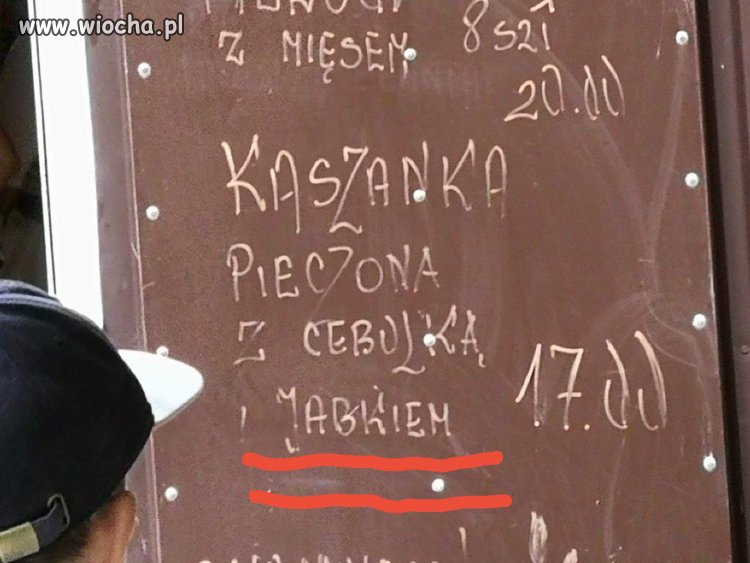 www.wiocha.pl
Z MIĘSEM 8 szt
20.00
KASZANKA
PIECZONA
Z CEBULKĄ
I JABKIEM 17.00